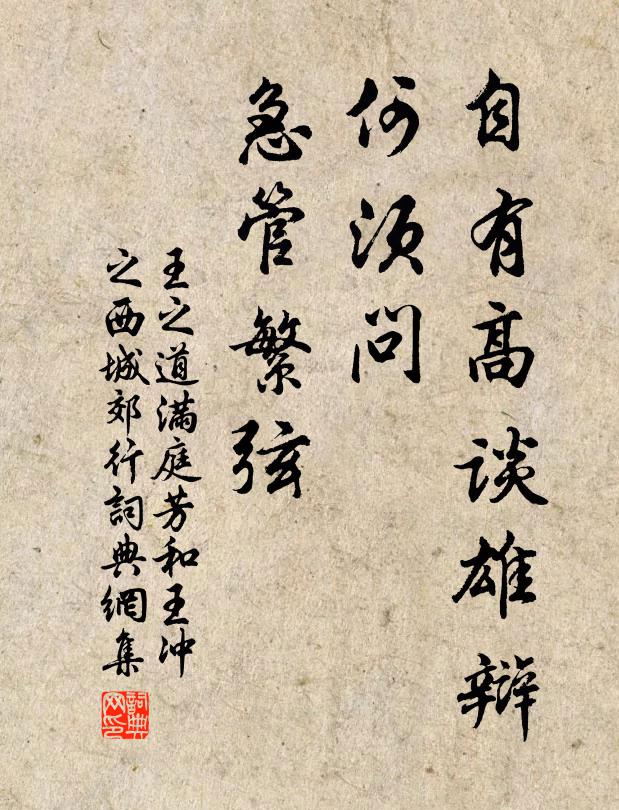 自有高談雄辯
何須問
急管繁弦
王之道滿庭芳和王冲
之西城郊行詞典網集
詞典
网印